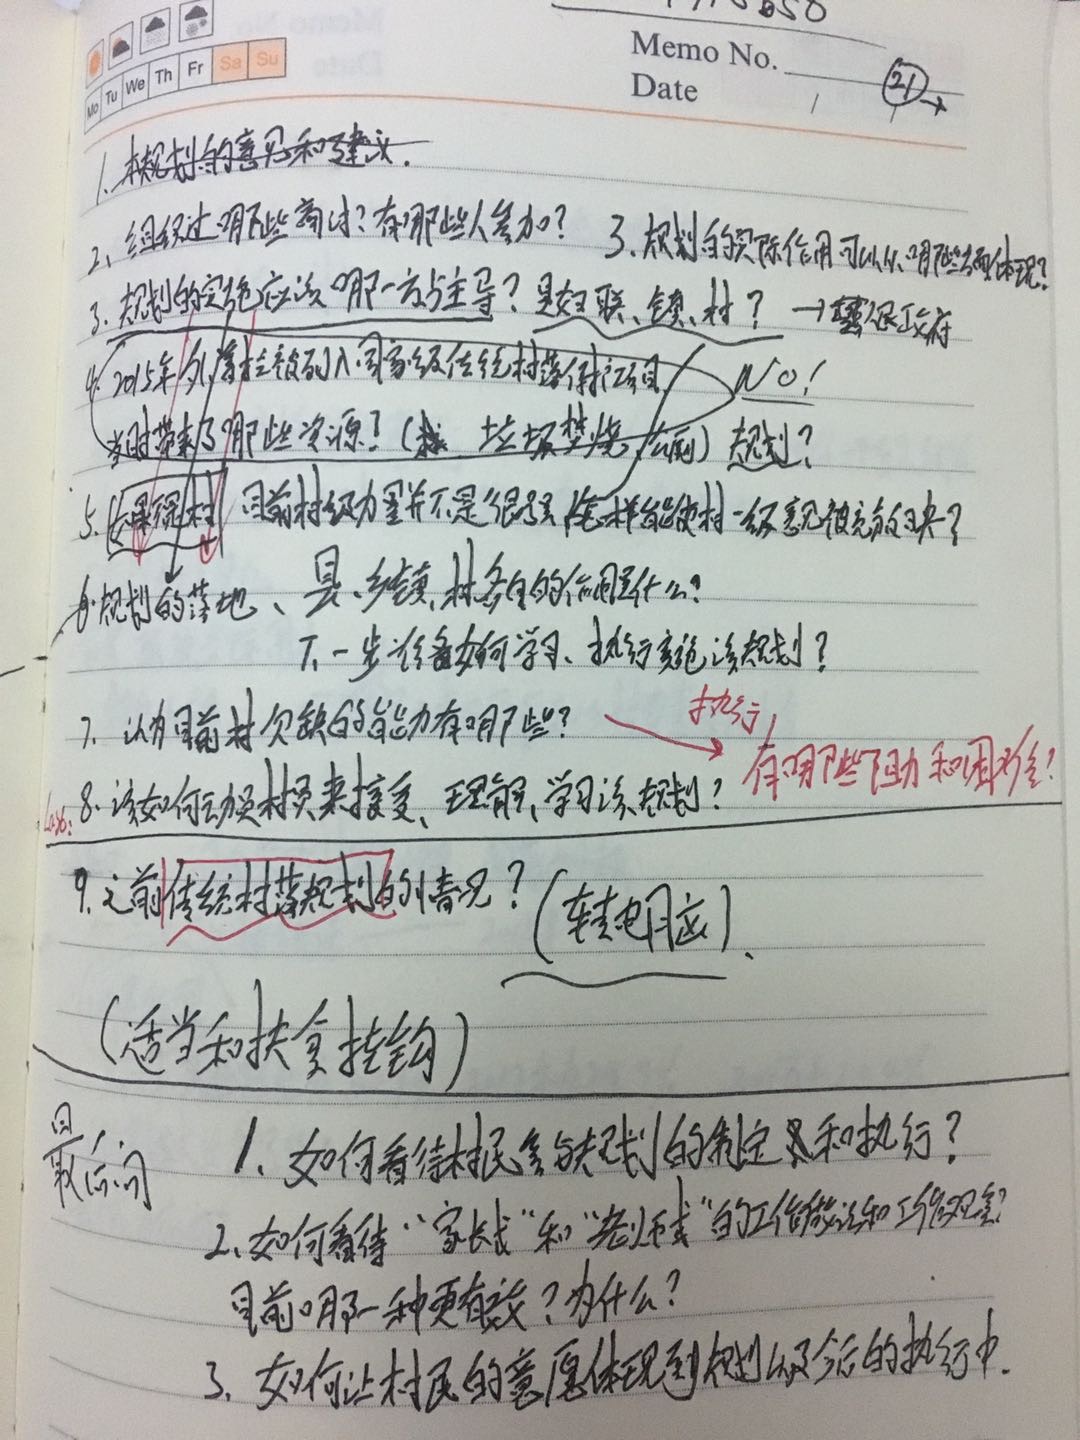 Memo No.
Date
Mo Tu We Th Fr Sa Su
21
1. 本规划的意见和建议.
2、组织过哪些商讨?有哪些人参加?
3.规划的实际作用可以从哪些方面体现?
3. 规划的实施应该哪一方占主导?是妇联、镇、村? → 政府
4. 2015年 被列入国家级传统村落保护项目
当时带来了哪些资源?( 垃圾焚烧、公厕)规划?
No!
5. 如果偏村 目前村级力量并不是很强,怎样能使村一级意见被充分反映?
6.规划的落地、县、乡镇、村各自的作用是什么?
下一步准备如何学习、执行实施该规划?
7. 认为目前村欠缺的能力有哪些?
执行,
有哪些阻力和困难?
8. 该如何动员村民来接受、理解、学习该规划?
9.之前传统村落规划的情况?
(适当和扶贫挂钩)
最后问
1. 如何看待村民参与规划的制定和执行?
2、如何看待“家长式”和“老师式”的工作做法和工作观念?
目前哪一种更有效?为什么?
3、如何让村民的意愿体现到规划以及今后的执行中.